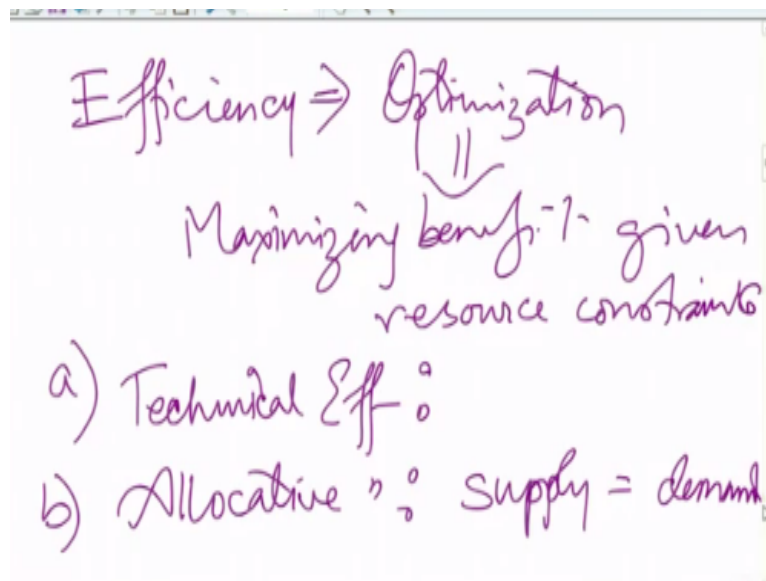 Efficiency ⇒ Optimization
Maximizing benefit given
resource constraints
a) Technical Eff :
b) Allocative " : supply = demand